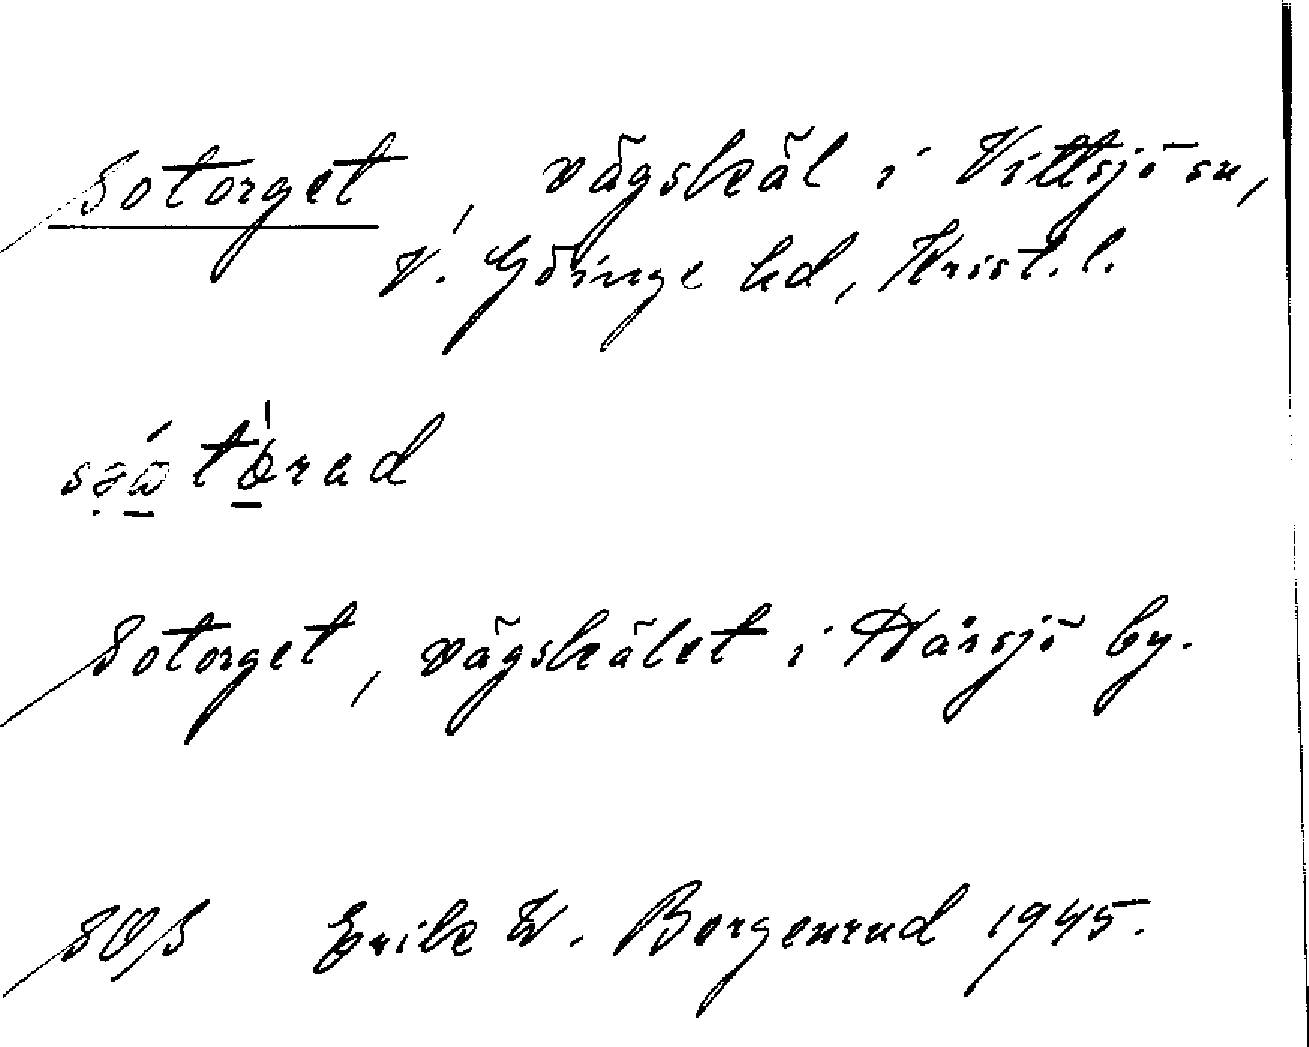 Sotorget, vägskäl i Vittsjö sn,
V. Göinge hd, Krist. l.
Sotorget, vägskälet i Hårsjö by.
SOS Erik W. Borgenrud 1945.